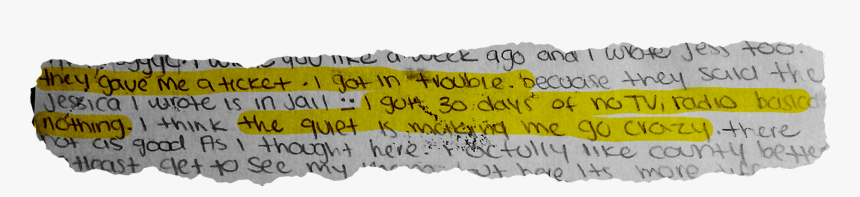 you like a week ago and I wrote Jess too.
they gave me a ticket. I got in trouble. becuase they said the
Jessica I wrote is in Jail :: I gott 30 days of no TV, radio basica
nothing. I think the quiet is making me go crazy. there
not as good As I thought here. I actully like county bette
atleast get to see my but here Its more